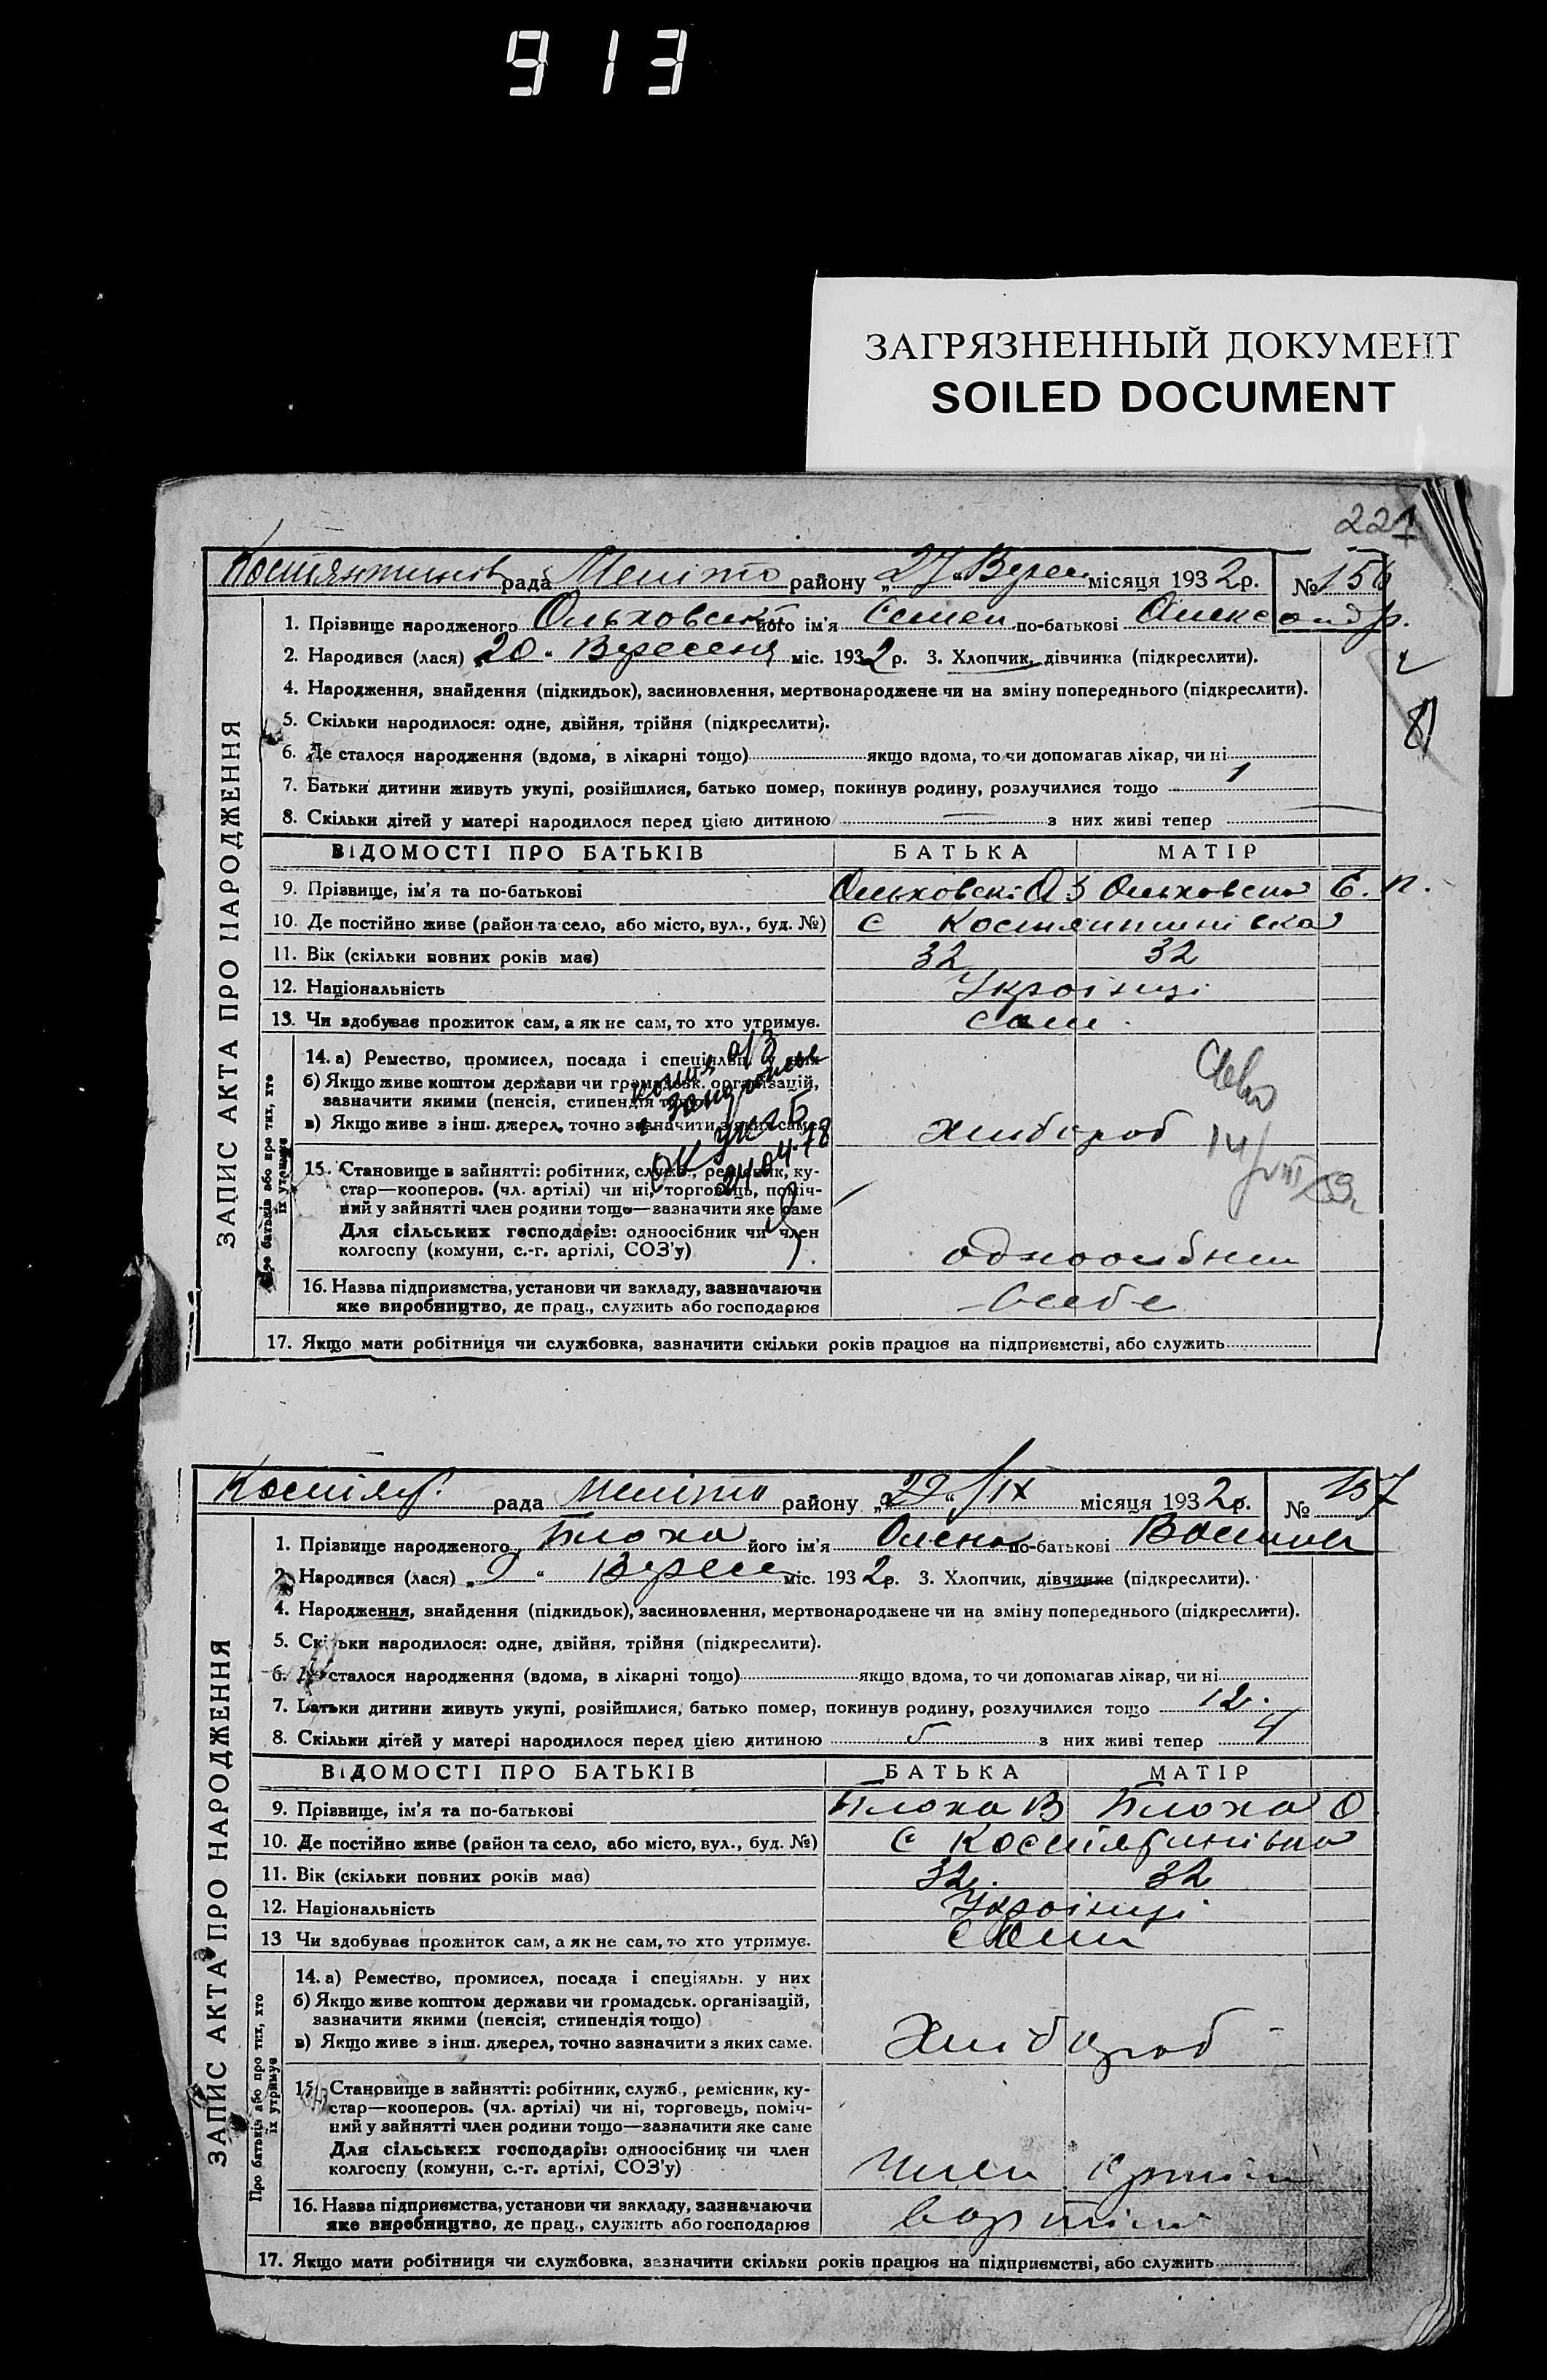 913
ЗАГРЯЗНЕННЫЙ ДОКУМЕНТ
SOILED DOCUMENT
221
ЗАПИС АКТА ПРО НАРОДЖЕННЯ
Костянтинів рада Меліто району „27“ Верес місяця 1932 р. № 156
1. Прізвище народженого Ольховський його ім'я Семен по-батькові Олександр.
2. Народився (лася) „20“ Вересня міс. 1932 р. 3. Хлопчик, дівчинка (підкреслити).
4. Народження, знайдення (підкидьок), засиновлення, мертвонароджене чи на зміну попереднього (підкреслити).
5. Скільки народилося: одне, двійня, трійня (підкреслити).
6. Де сталося народження (вдома, в лікарні тощо) якщо вдома, то чи допомагав лікар, чи ні
7. Батьки дитини живуть укупі, розійшлися, батько помер, покинув родину, розлучилися тощо 1
8. Скільки дітей у матері народилося перед цією дитиною — з них живі тепер
ВІДОМОСТІ ПРО БАТЬКІВ БАТЬКА МАТІР
9. Прізвище, ім'я та по-батькові Ольховскі О З Ольховська Є. П.
10. Де постійно живе (район та село, або місто, вул., буд. №) с Костянтинівка
11. Вік (скільки повних років має) 32 32
12. Національність Українці
13. Чи здобуває прожиток сам, а як не сам, то хто утримує. сами
Про батьків або про тих, хто їх утримує
14. а) Ремество, промисел, посада і спеціяльн. у них
б) Якщо живе коштом держави чи громадськ. організацій,
зазначити якими (пенсія, стипендія тощо)
в) Якщо живе з інш. джерел, точно зазначити з яких саме. Хлібороб
24.04.78
15. Становище в зайнятті: робітник, служб., ремісник, ку-
стар—кооперов. (чл. артілі) чи ні, торговець, поміч-
ний у зайнятті член родини тощо—зазначити яке саме
Для сільських господарів: одноосібник чи член
колгоспу (комуни, с.-г. артілі, СОЗ'у) одноосібник
16. Назва підприємства, установи чи закладу, зазначаючи
яке виробництво, де прац., служить або господарює всебе
17. Якщо мати робітниця чи службовка, зазначити скільки років працює на підприємстві, або служить
ЗАПИС АКТА ПРО НАРОДЖЕННЯ
Костянт. рада Меліто району „29“ /IX місяця 1932 р. № 157
1. Прізвище народженого Блоха його ім'я Олена по-батькові Васильов
2. Народився (лася) „9“ Верес міс. 1932 р. 3. Хлопчик, дівчинка (підкреслити).
4. Народження, знайдення (підкидьок), засиновлення, мертвонароджене чи на зміну попереднього (підкреслити).
5. Скільки народилося: одне, двійня, трійня (підкреслити).
6. Де сталося народження (вдома, в лікарні тощо) якщо вдома, то чи допомагав лікар, чи ні
7. Батьки дитини живуть укупі, розійшлися, батько помер, покинув родину, розлучилися тощо 12.
8. Скільки дітей у матері народилося перед цією дитиною 5 з них живі тепер 4
ВІДОМОСТІ ПРО БАТЬКІВ БАТЬКА МАТІР
9. Прізвище, ім'я та по-батькові Блоха В Блоха О
10. Де постійно живе (район та село, або місто, вул., буд. №) с Костянтинівка
11. Вік (скільки повних років має) 32. 32
12. Національність Українці
13 Чи здобуває прожиток сам, а як не сам, то хто утримує. сами
Про батьків або про тих, хто їх утримує
14. а) Ремество, промисел, посада і спеціяльн. у них
б) Якщо живе коштом держави чи громадськ. організацій,
зазначити якими (пенсія, стипендія тощо)
в) Якщо живе з інш. джерел, точно зазначити з яких саме. Хлібороб
15. Становище в зайнятті: робітник, служб., ремісник, ку-
стар—кооперов. (чл. артілі) чи ні, торговець, поміч-
ний у зайнятті член родини тощо—зазначити яке саме
Для сільських господарів: одноосібник чи член
колгоспу (комуни, с.-г. артілі, СОЗ'у) член артіли
16. Назва підприємства, установи чи закладу, зазначаючи
яке виробництво, де прац., служить або господарює вартіли
17. Якщо мати робітниця чи службовка, зазначити скільки років працює на підприємстві, або служить